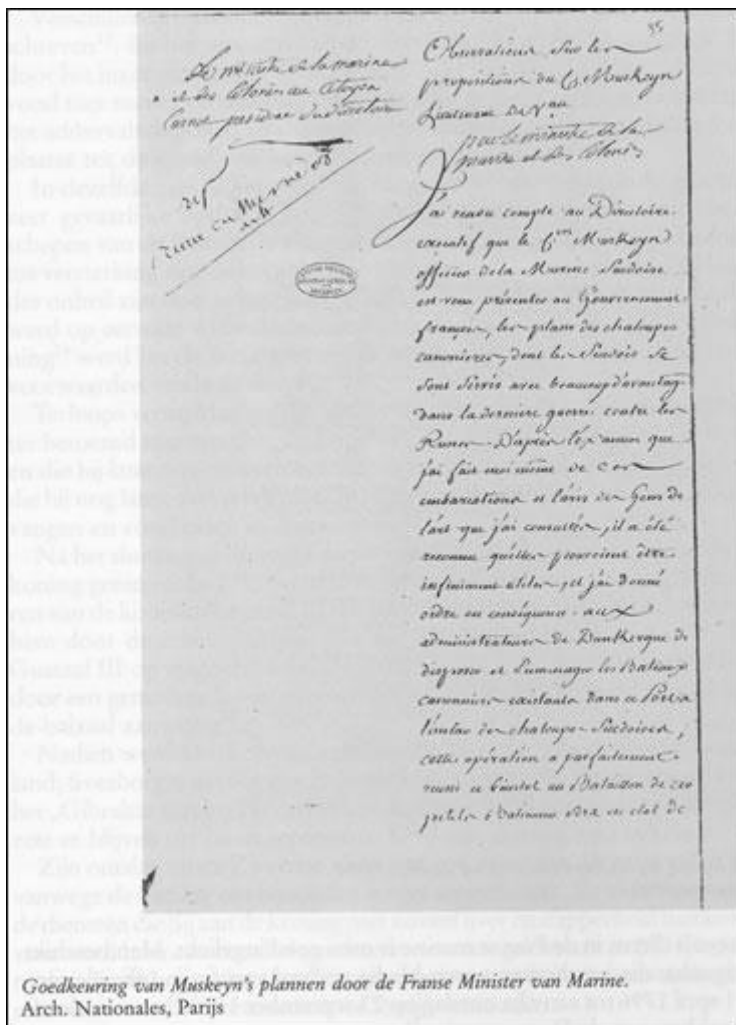 55
Le Ministre de la marine
et des Colonies au Citoyen
Carnot président du Directoire
Observations sur les
propositions du C. Muskeyn
Lieutenant de V.au
par le ministre de la
marine et des Colonies
J'ai rendu compte au Directoire
executif que le C.en Muskeyn
officier de la Marine Suedoise
est venu présenter au Gouvernement
français, les plans des chaloupes
canonnieres, dont les Suedois se
sont servis avec beaucoup d'avantag
dans la derniere guerre contre les
Russes. D'après l'examen que
j'ai fait moi même de ces
embarcations et l'avis des Gens de
l'art que j'ai consultés, il a été
reconnu qu'elles pouvoient être
infiniment utiles, et j'ai donné
ordre en conséquence aux
administrateurs de Dunkerque de
disposer et d'emmenager les Bateaux
canonniers existants dans ce Port a
l'instar des chaloupes Suedoises,
cette opération a parfaitement
reussi et bientot un Bataillon de ces
petits Batimens sera en etat de
Goedkeuring van Muskeyn's plannen door de Franse Minister van Marine.
Arch. Nationales, Parijs